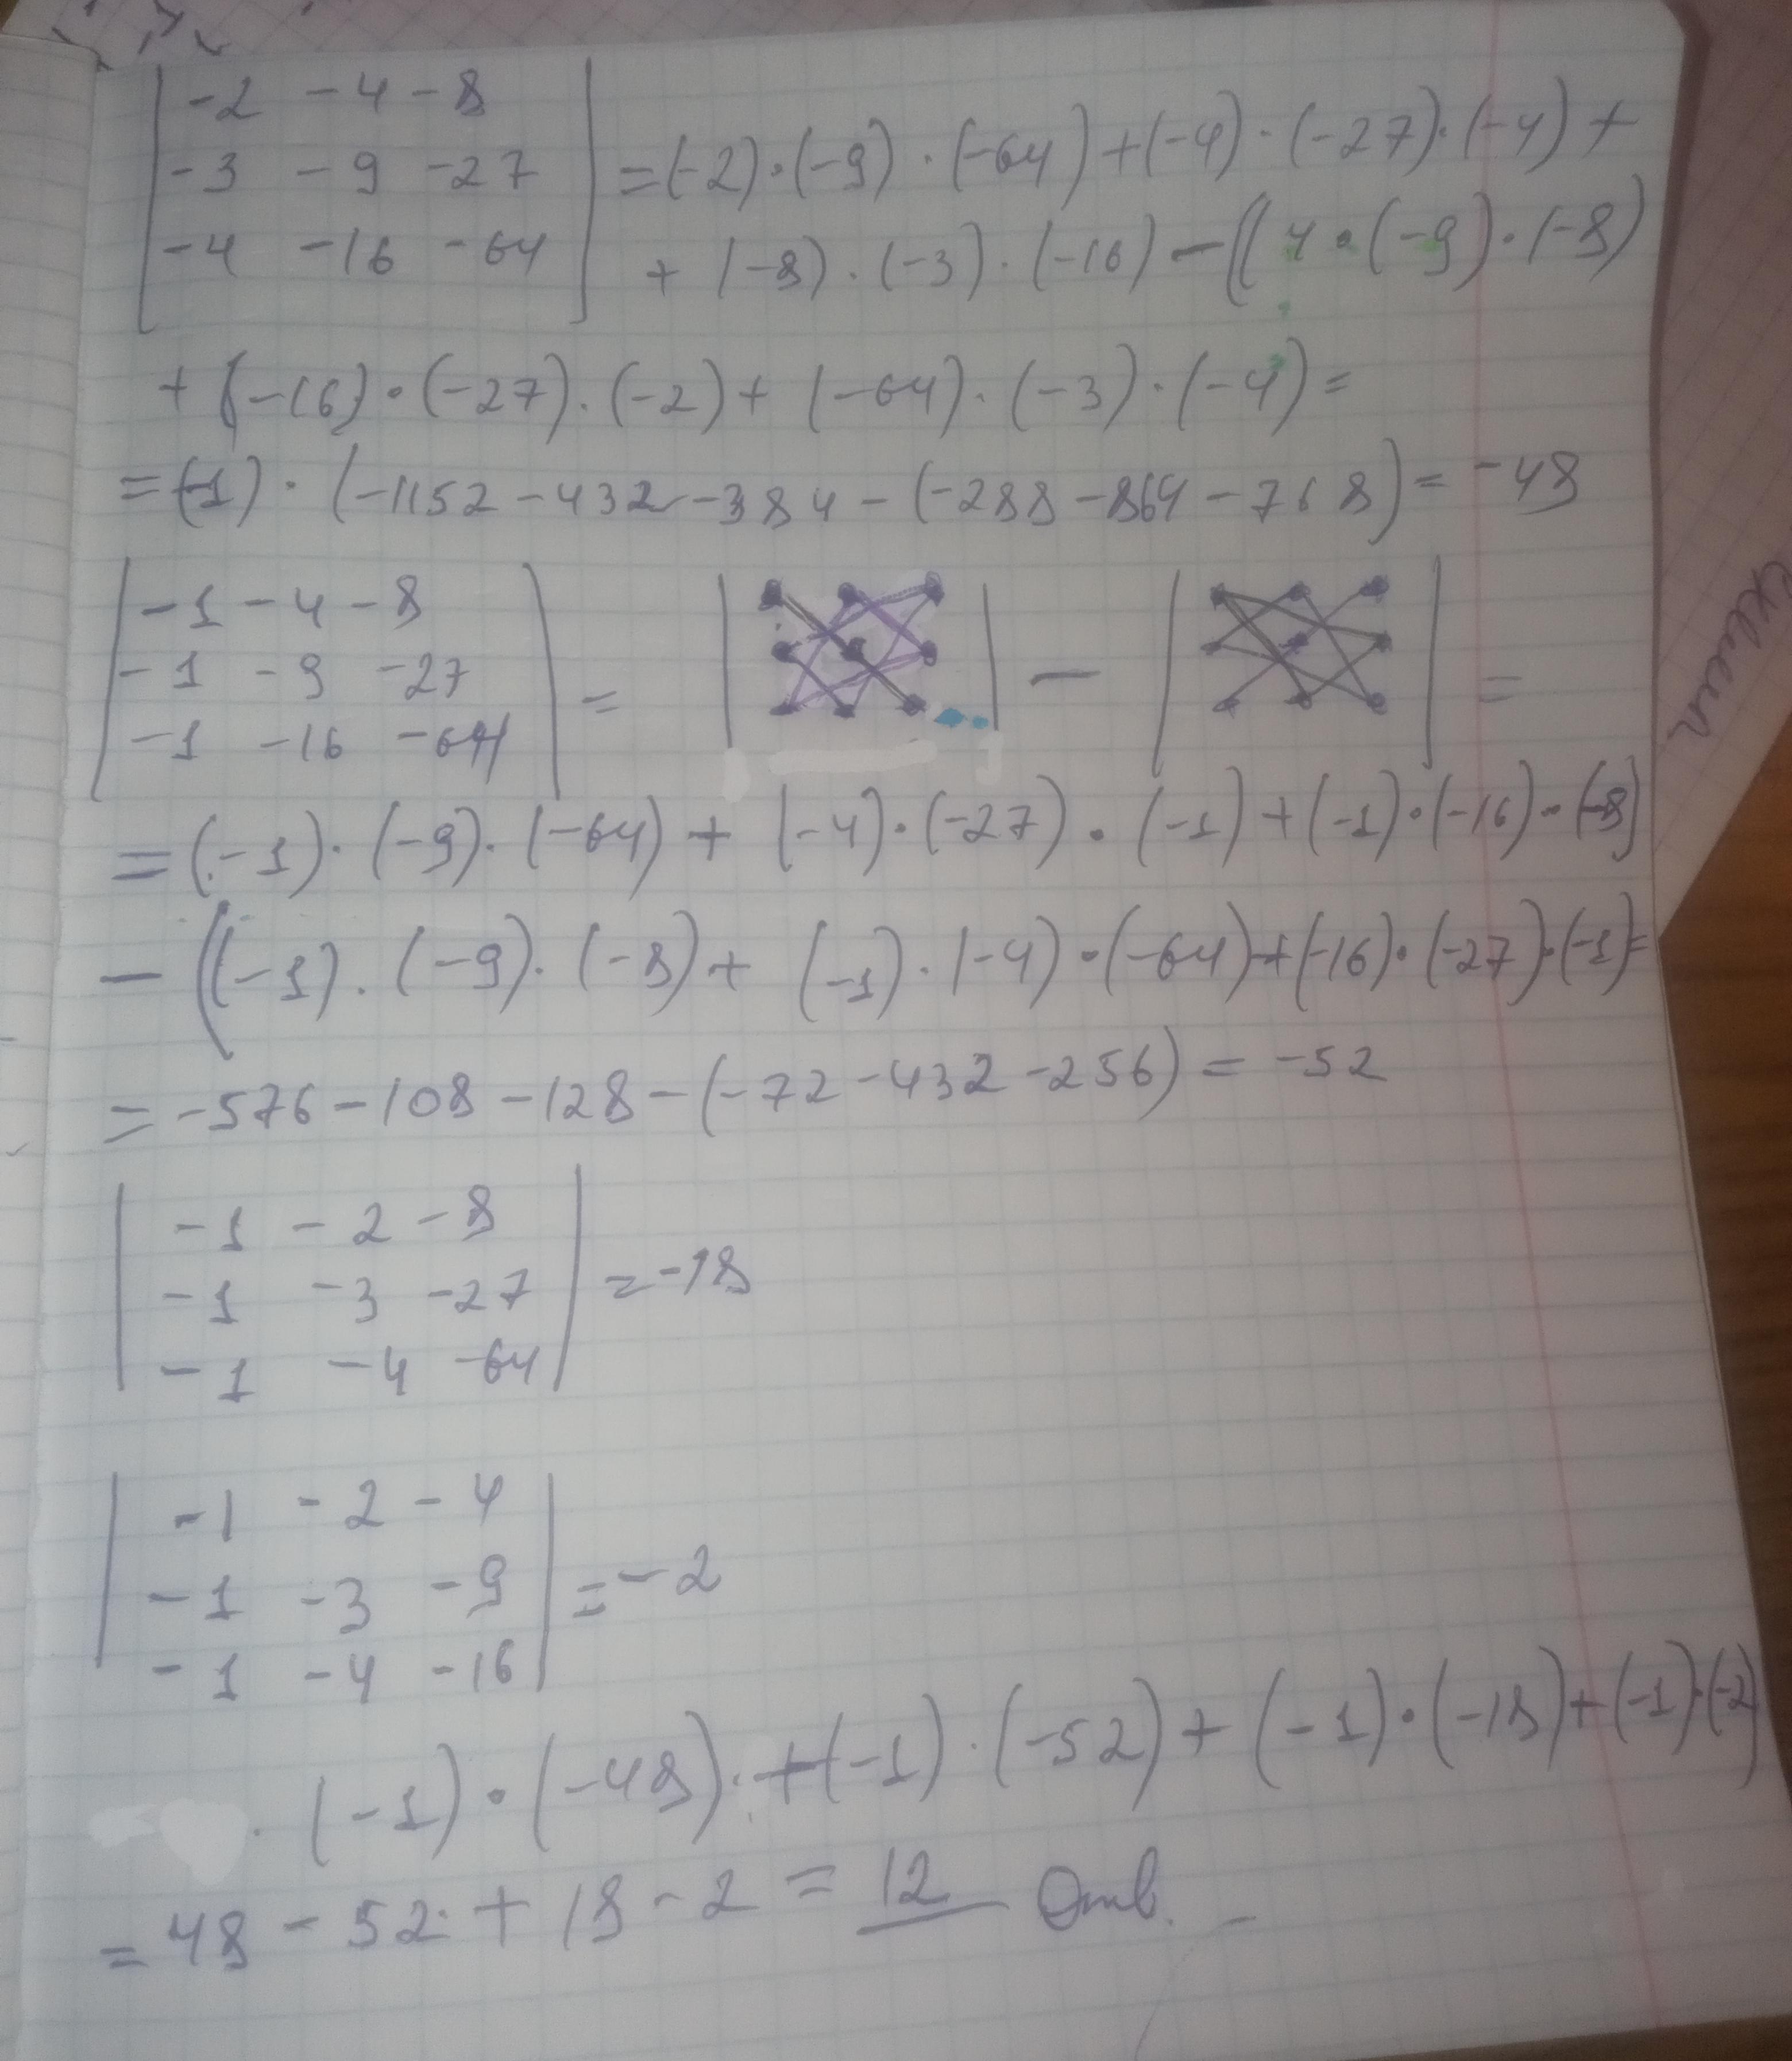 | -2 -4 -8 |
| -3 -9 -27 | = (-2)·(-9)·(-64)+(-4)·(-27)·(-4)+
| -4 -16 -64 | + (-8)·(-3)·(-16)-((4·(-9)·(-8)
+ (-16)·(-27)·(-2)+(-64)·(-3)·(-4)=
=(-1)·(-1152-432-384-(-288-864-768)=-48
| -1 -4 -8 |
| -1 -9 -27 | = | | - | | =
| -1 -16 -64 |
=(-1)·(-9)·(-64)+(-4)·(-27)·(-1)+(-1)·(-16)·(-8)
-((-1)·(-9)·(-8)+(-1)·(-4)·(-64)+(-16)·(-27)·(-1)=
=-576-108-128-(-72-432-256)=-52
| -1 -2 -8 |
| -1 -3 -27 | =-18
| -1 -4 -64 |
| -1 -2 -4 |
| -1 -3 -9 | =-2
| -1 -4 -16 |
·(-1)·(-48)·+(-1)·(-52)+(-1)·(-18)+(-1)·(-2)
=48-52+18-2=12 Отв.